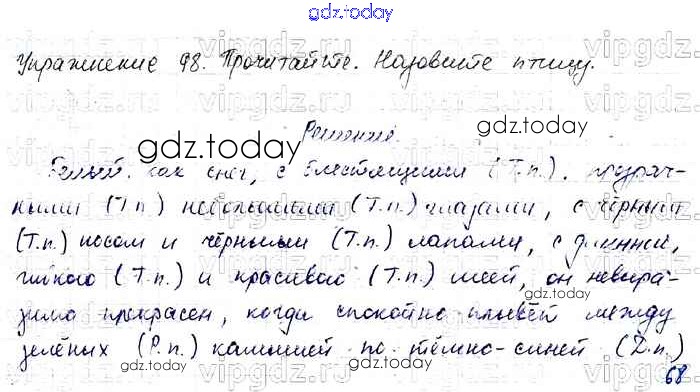 gdz.today
Упражнение 98. Прочитайте. Назовите птицу.
Решение.
Белый как снег, с блестящими (Т.п.), прозрач-
ными (Т.п) небольшими (Т.п.) глазами, с чёрным
(Т.п.) носом и чёрными (Т.п.) лапами, с длинной,
гибкою (Т.п.) и красивою (Т.п.) шеей, он невыра-
зимо прекрасен, когда спокойно плывёт между
зелёных (Р.п.) камышей по тёмно-синей (Д.п.)
68